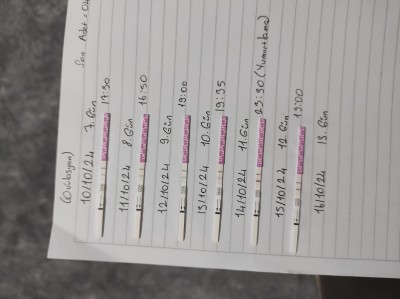 (Ovulasyon) Son Adet :
10/10/24 7. Gün 17:30
11/10/24 8. Gün 16:50
12/10/24 9. Gün 19:00
13/10/24 10. Gün 19:35
14/10/24 11. Gün 23:30 (Yumurtlama)
15/10/24 12. Gün 19:00
16/10/24 13. Gün